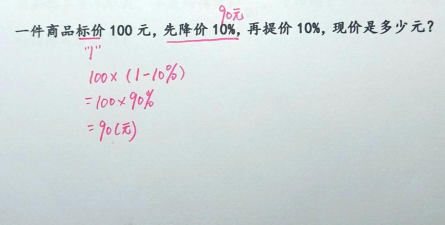 90元
一件商品标价 100 元, 先降价 10%, 再提价 10%, 现价是多少元?
"1"
100×(1-10%)
=100×90%
=90(元)